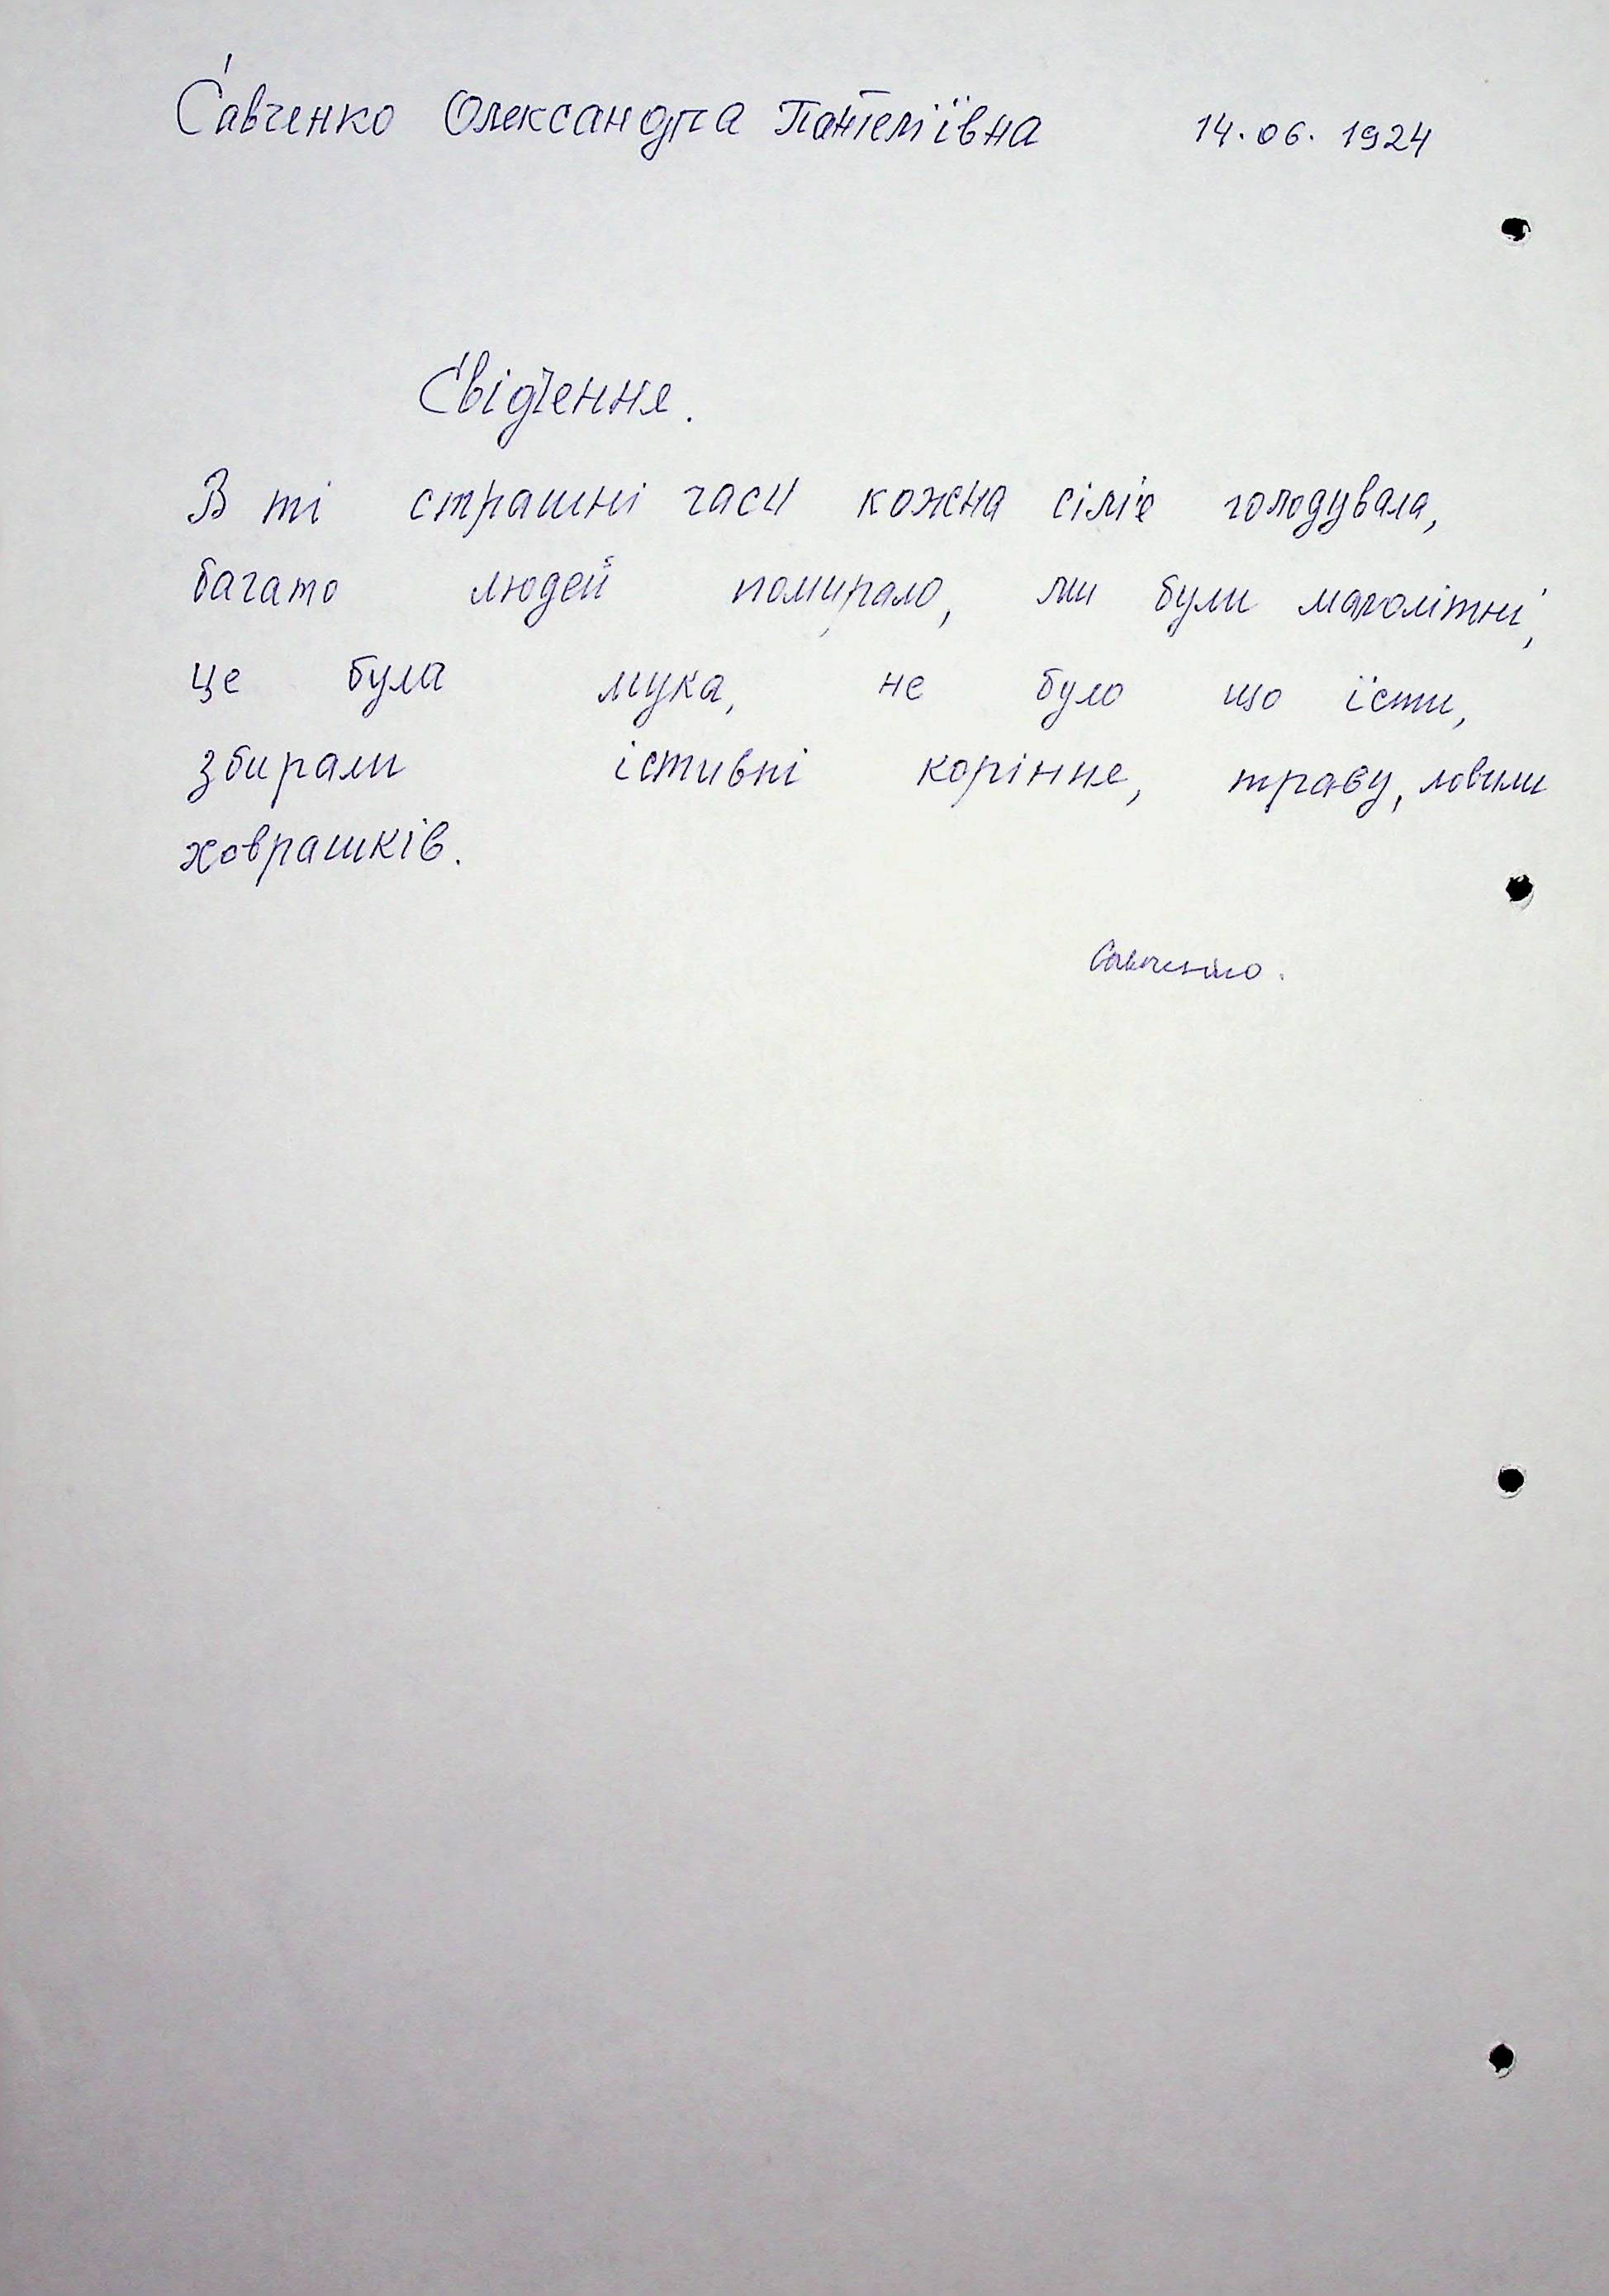 Савченко Олександра Пантеліївна 14.06.1924
Свідчення.
В ті страшні часи кожна сім'я голодувала,
багато людей помирало, ми були малолітні,
це була мука, не було що їсти,
збирали істивні коріння, траву, ловили
ховрашків.
Савченко.